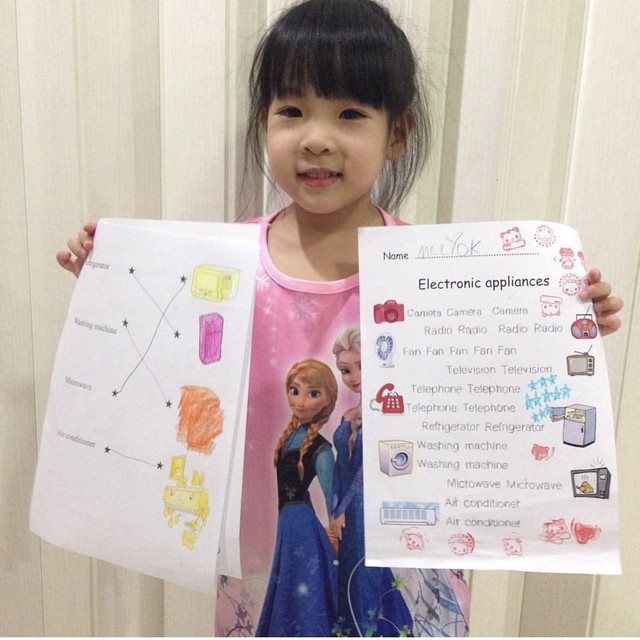 Refrigerator
Washing machine
Microwave
Air conditioner
Name MeeYOK
Electronic appliances
Camera Camera Camera
Radio Radio Radio Radio
Fan Fan Fan Fan Fan
Television Television
Telephone Telephone
Telephone Telephone
Refrigerator Refrigerator
Washing machine
Washing machine
Microwave Microwave
Air conditioner
Air conditioner